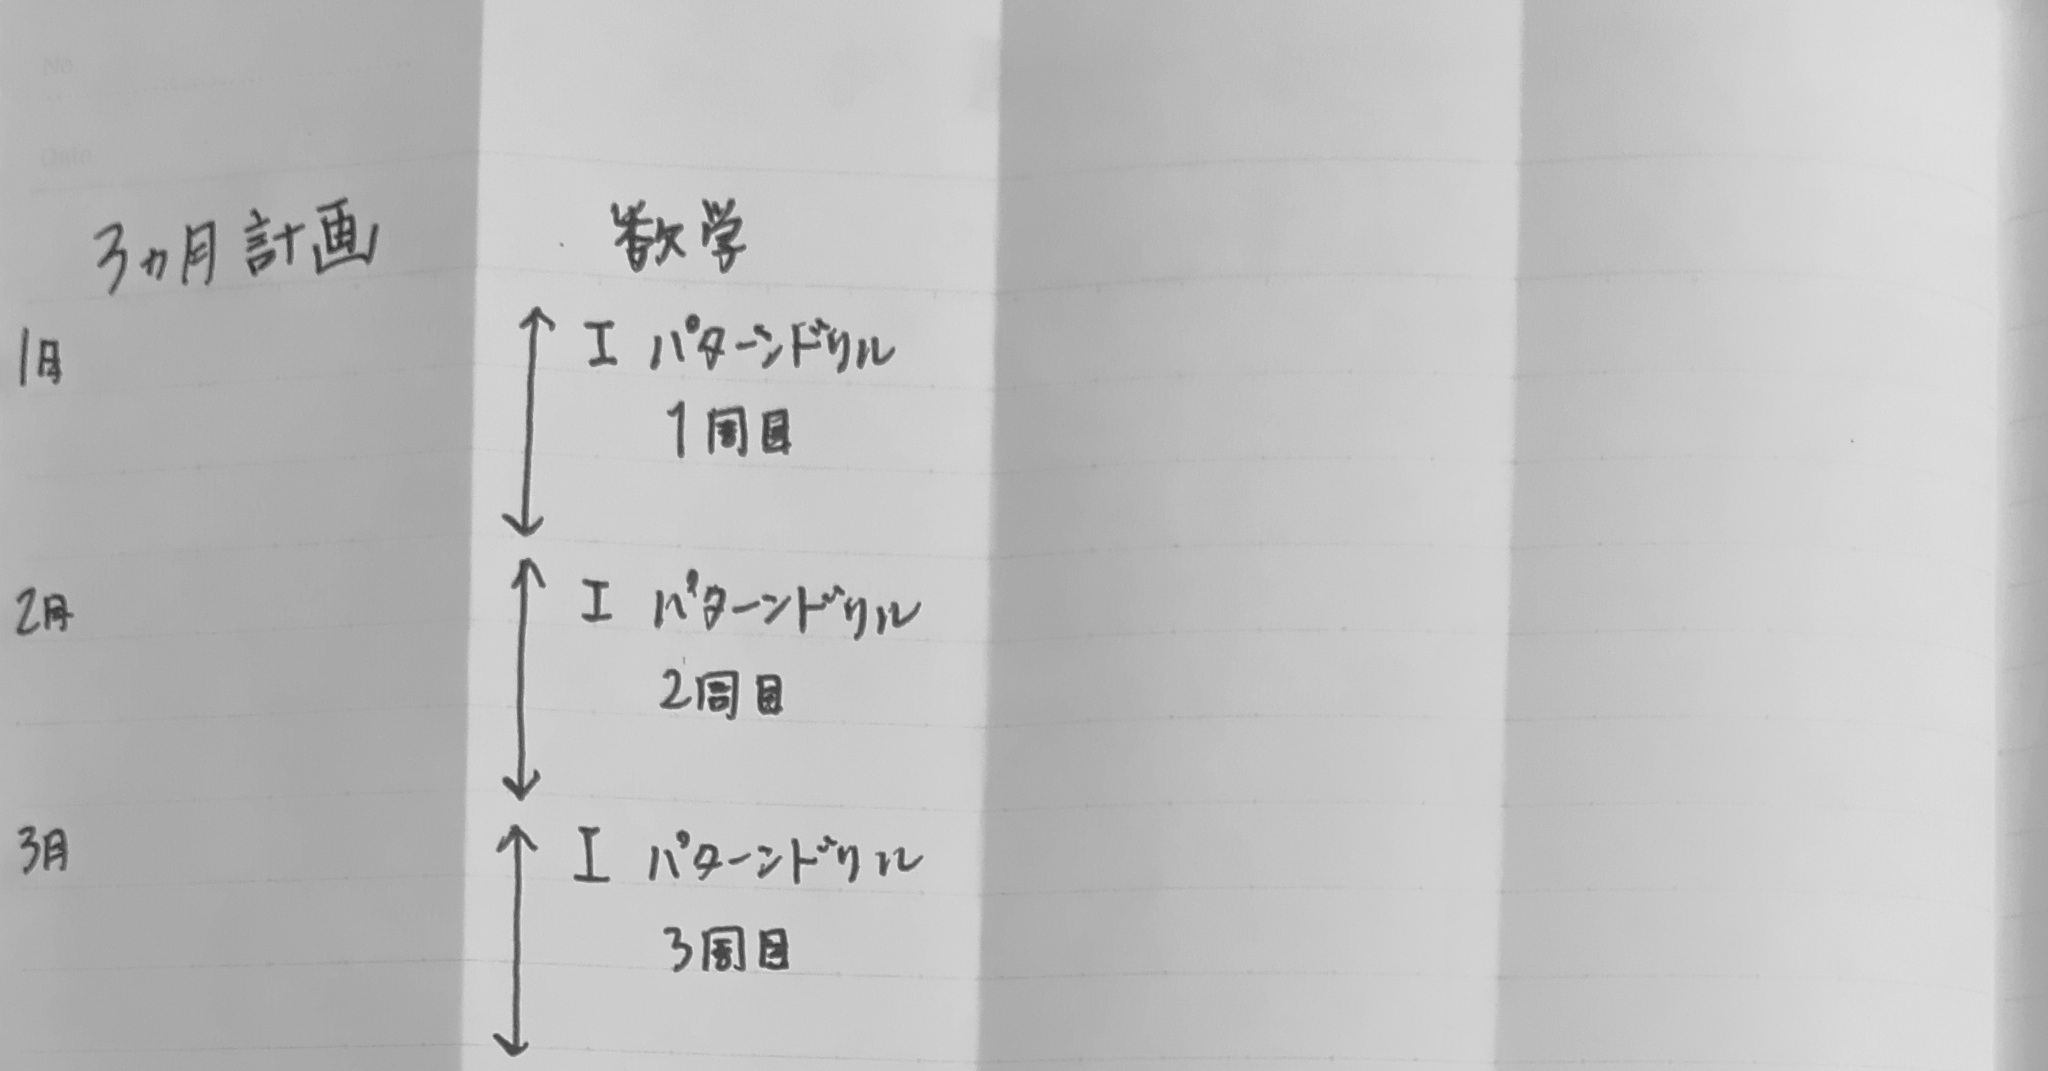 No.
Date
3ヵ月計画 数学
1月 I パターンドリル
1周目
2月 I パターンドリル
2周目
3月 I パターンドリル
3周目